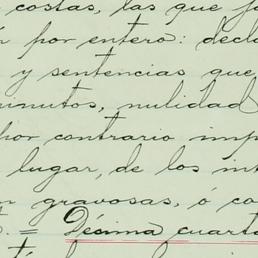 costas, las que
por entero: decla
y sentencias que
minutos, nulidad
por contrario imp
lugar, de los in
gravosas, ó co
= Désima cuarta